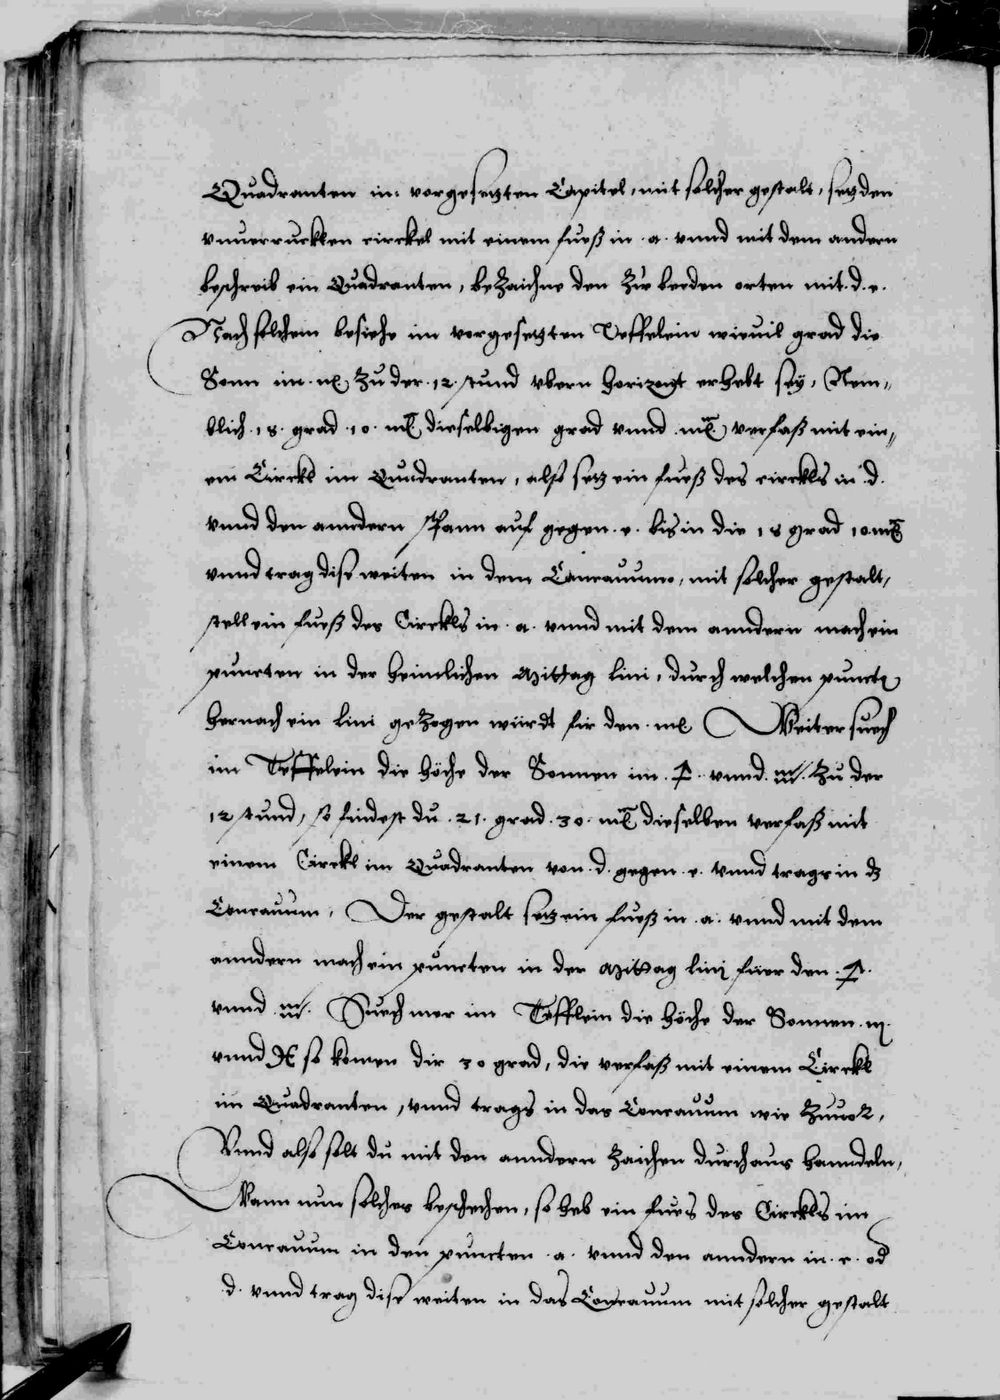 Quadranten in vorgesetzten Capitel, mit solcher gestalt, setz den
vnuerruckten circkel mit einem fueß in .a. vnnd mit dem andern
beschreib ein Quadranten, bezaichne den zu beeden orten mit .d.e.
Nach solchem besiehe im vorgesetzten Teffelein wieuil grad die
Sonn im ♑ zu der .12. stund vbern horizont erhebt sey, Nem⸗
blich .18. grad .10. mi͠ dieselbigen grad vnnd mi͠ verfaß mit ein⸗
em Circkl im Quadranten, also setz ein fueß des circkls in .d.
vnnd den anndern spann auf gegen .e. bis in die 18 grad 10 mi͠
vnnd trag dise weiten in dem Concauumo, mit solcher gestalt,
stell ein fueß des Circkls in .a. vnnd mit dem anndern mach ein
puncten in der heimlichen Mittag lini, durch welchen punctn
hernach ein lini gezogen würdt fir den ♑ Weiter suech
im Teffelein die höche der Sonnen im .♐. vnnd .♒. zu der
12 stund, so findest du .21. grad .30. mi͠ dieselben verfaß mit
einem Circkl im Quadranten von .d. gegen .e. vnnd trags in dz
Concauum, Der gestalt setz ein fueß in .a. vnnd mit dem
anndern mach ein puncten in der Mittag linj fuer den .♐.
vnnd .♒. Suech mer im Tefflein die höche der Sonnen ♏.
vnnd ♓ so komen dir 30 grad, die verfaß mit einem Circkl
im Quadranten, vnnd trags in das Concauum wie zuuor,
Vnnd also solt du mit den anndern zaichen durchaus hanndeln,
Wann nun solches beschechen, so heb ein fues des Circkls im
Concauum in den puncten .a. vnnd den anndern in .c. od
.d. vnnd trag dise weiten in das Concauum mit solcher gestalt